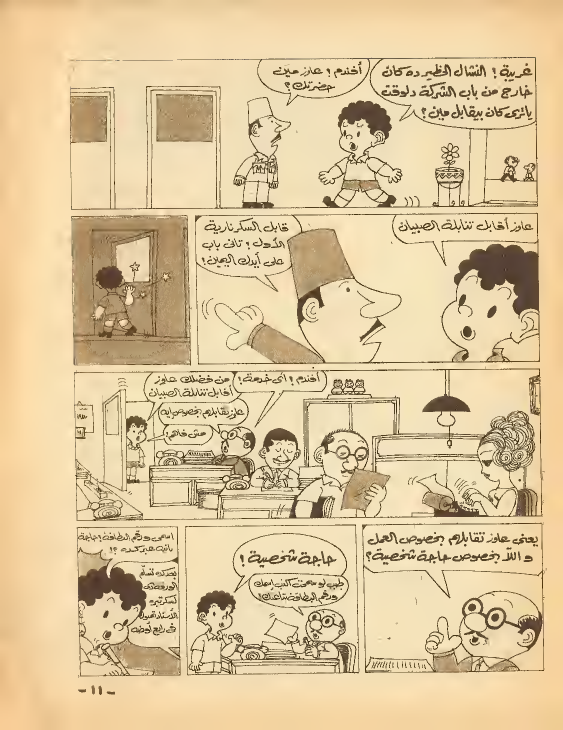 غريبة ! النشال الخطير ده كان
خارج من باب الشركة دلوقت
ياترى كان بيقابل مين ؟
أفندم ! عاوز مين
حضرتك ؟
عاوز أقابل تنابلة الصبيان
قابل السكرتارية
الأول ! تانى باب
على أيدك اليمين !
أفندم ! أى خدمة !
من فضلك عاوز
أقابل تنابلة الصبيان
عاوز تقابلهم بخصوص إيه
مش فاهم !
يعنى عاوز تقابلهم بخصوص العمل
و اللا بخصوص حاجة شخصية ؟
حاجة شخصية !
طيب لو سمحت اكتب اسمك
ورقم البطاقة بتاعتك !
اسمى ورقم البطاقة ! حاجة
تانية غير كده ؟!
بعد كده تسلم
الورقة دى
لسكرتيرة
الأستاذ
فى رابع أوضه
- ١١ -